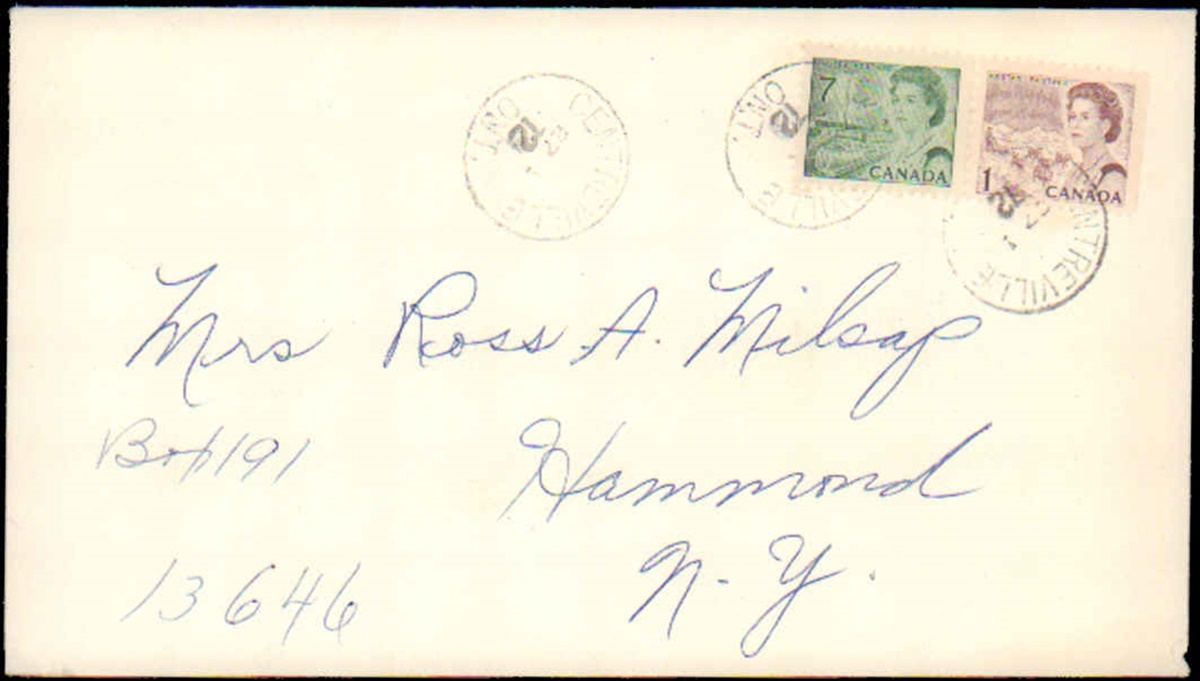 CENTREVILLE ONT. 72
CENTREVILLE ONT. 72
7 CANADA
1 CANADA
CENTREVILLE 72
Mrs Ross A. Milsap
Box 191
Hammond
N.Y.
13646